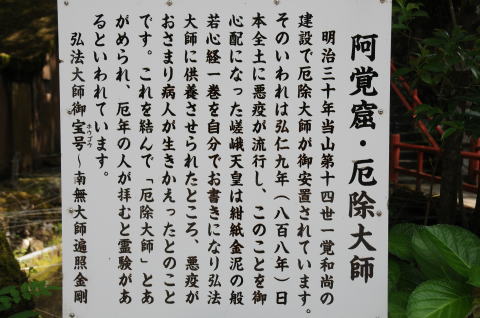 阿覚窟・厄除大師
明治三十年当山第十四世一覚和尚の
建設で厄除大師が御安置されています。
そのいわれは弘仁九年（八百八年）日
本全土に悪疫が流行し、このことを御
心配になった嵯峨天皇は紺紙金泥の般
若心経一巻を自分でお書きになり弘法
大師に供養させられたところ、悪疫が
おさまり病人が生きかえったとのこと
です。これを結んで「厄除大師」とあ
がめられ、厄年の人が拝むと霊験があ
るといわれています。
弘法大師御宝号〜南無大師遍照金剛
ホウゴウ